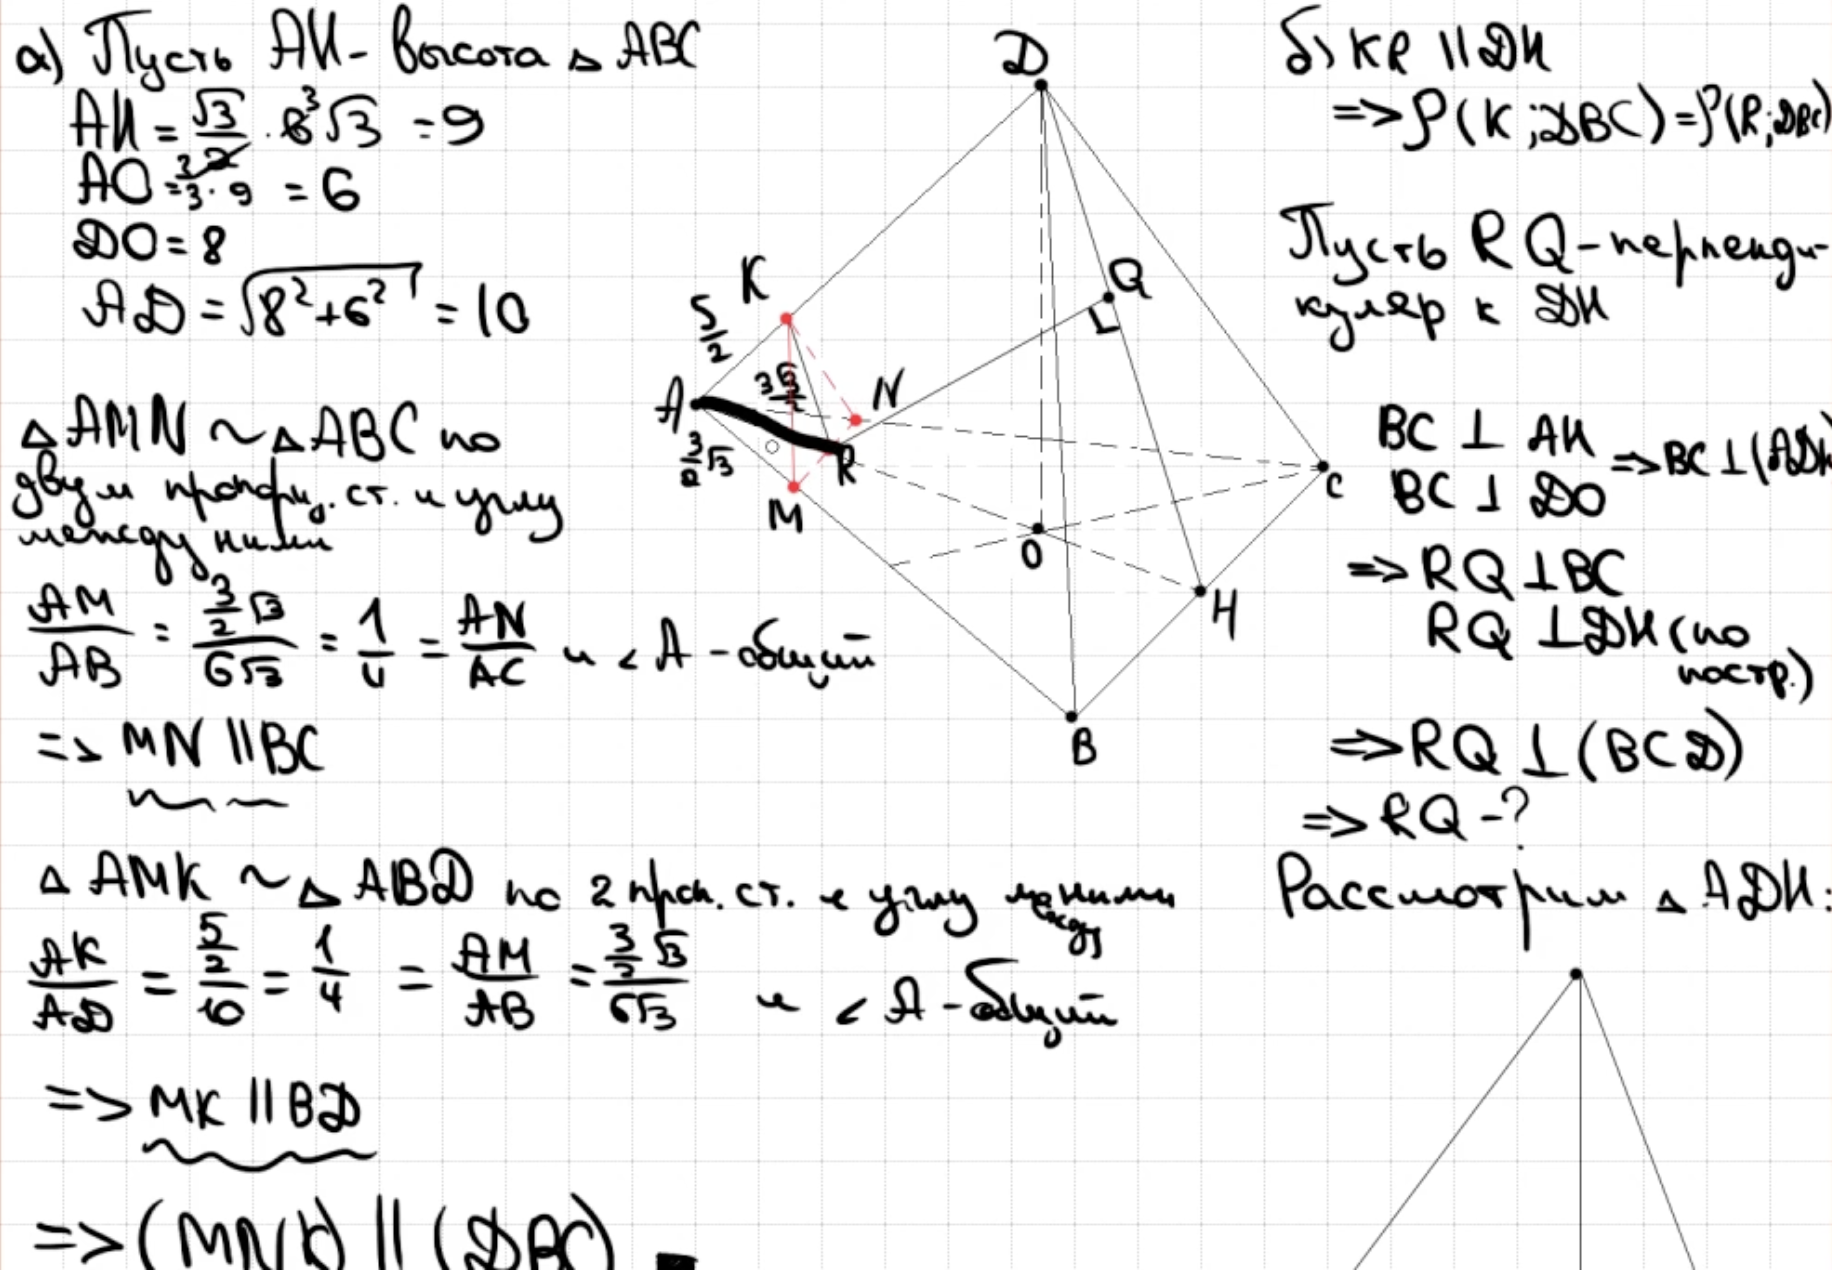 а) Пусть AH - высота △ ABC
AH = √3/2 · 6³√3 = 9
AO = 2/3 · 9³ = 6
DO = 8
AD = √(8² + 6²) = 10
△ AMN ~ △ ABC по
двум пропорц. ст. и углу
между ними
AM/AB = (3/2 √3)/(6√3) = 1/4 = AN/AC и ∠ A - общий
=> MN || BC
△ AMK ~ △ ABD по 2 проп. ст. и углу между ними
AK/AD = (5/2)/10 = 1/4 = AM/AB = (3/2 √3)/(6√3) и ∠ A - общий
=> MK || BD
=> (MNK) || (DBC)
D
K
5/2
Q
A
N
3/2 √3
R
M
C
O
H
B
б) KR || DH
=> ρ(K; DBC) = ρ(R; DBC)
Пусть RQ - перпенди-
куляр к DH
BC ⊥ AH
BC ⊥ DO
=> BC ⊥ (ADH
=> RQ ⊥ BC
RQ ⊥ DH (по
постр.)
=> RQ ⊥ (BCD)
=> RQ - ?
Рассмотрим △ ADH: